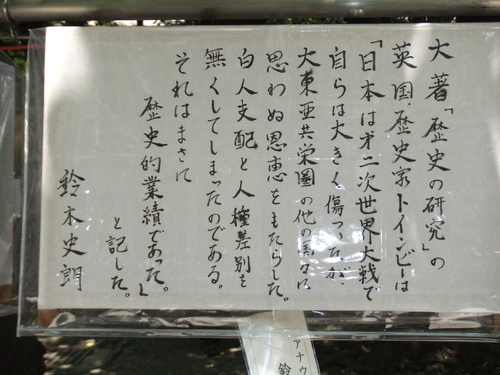 大著「歴史の研究」の
英国・歴史家トインビーは
「日本は才二次世界大戦で
自らは大きく傷ったが、
大東亜共栄圏の他の国々に
思わぬ恩恵をもたらした。
白人支配と人種差別を
無くしてしまったのである。
それはまさに
歴史的業績であった。」
と記した。
鈴木史朗
アナウ
鈴